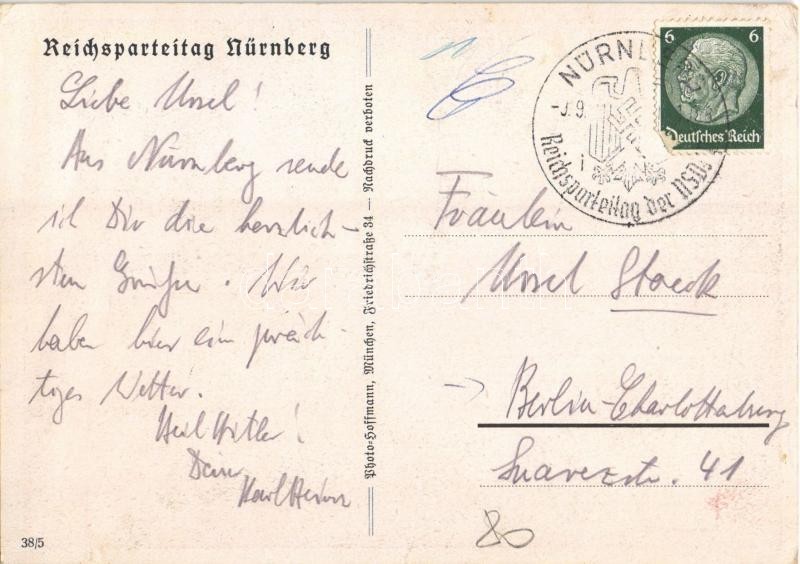 Reichsparteitag Nürnberg
Liebe Ursel!
Aus Nürnberg sende
ich Dir die herzlich-
sten Grüße. Wir
haben hier ein präch-
tiges Wetter.
Heil Hitler!
Dein
Karl Heinz
38/5
Photo-Hoffmann, München, Friedrichstraße 34 — Nachdruck verboten
NÜRN
9.
Reichsparteitag der NSD
i
6 6
Deutsches Reich
Fräulein
Ursel Stoeck
Berlin-Charlottenburg
Suarezstr. 41
80